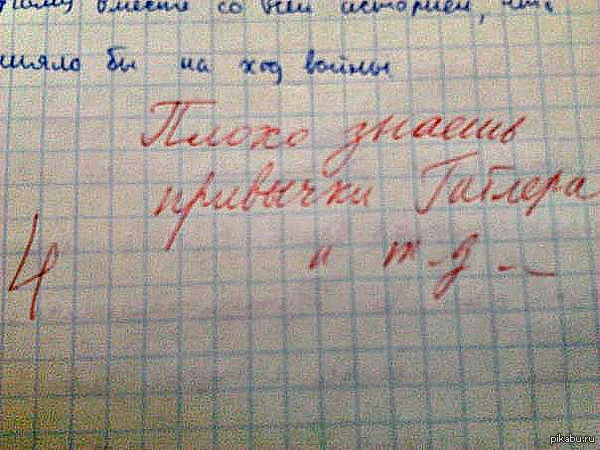 вместе со всей историей,
бы на ход войны
Плохо знаешь
привычки Гитлера
и т.д...
4
pikabu.ru